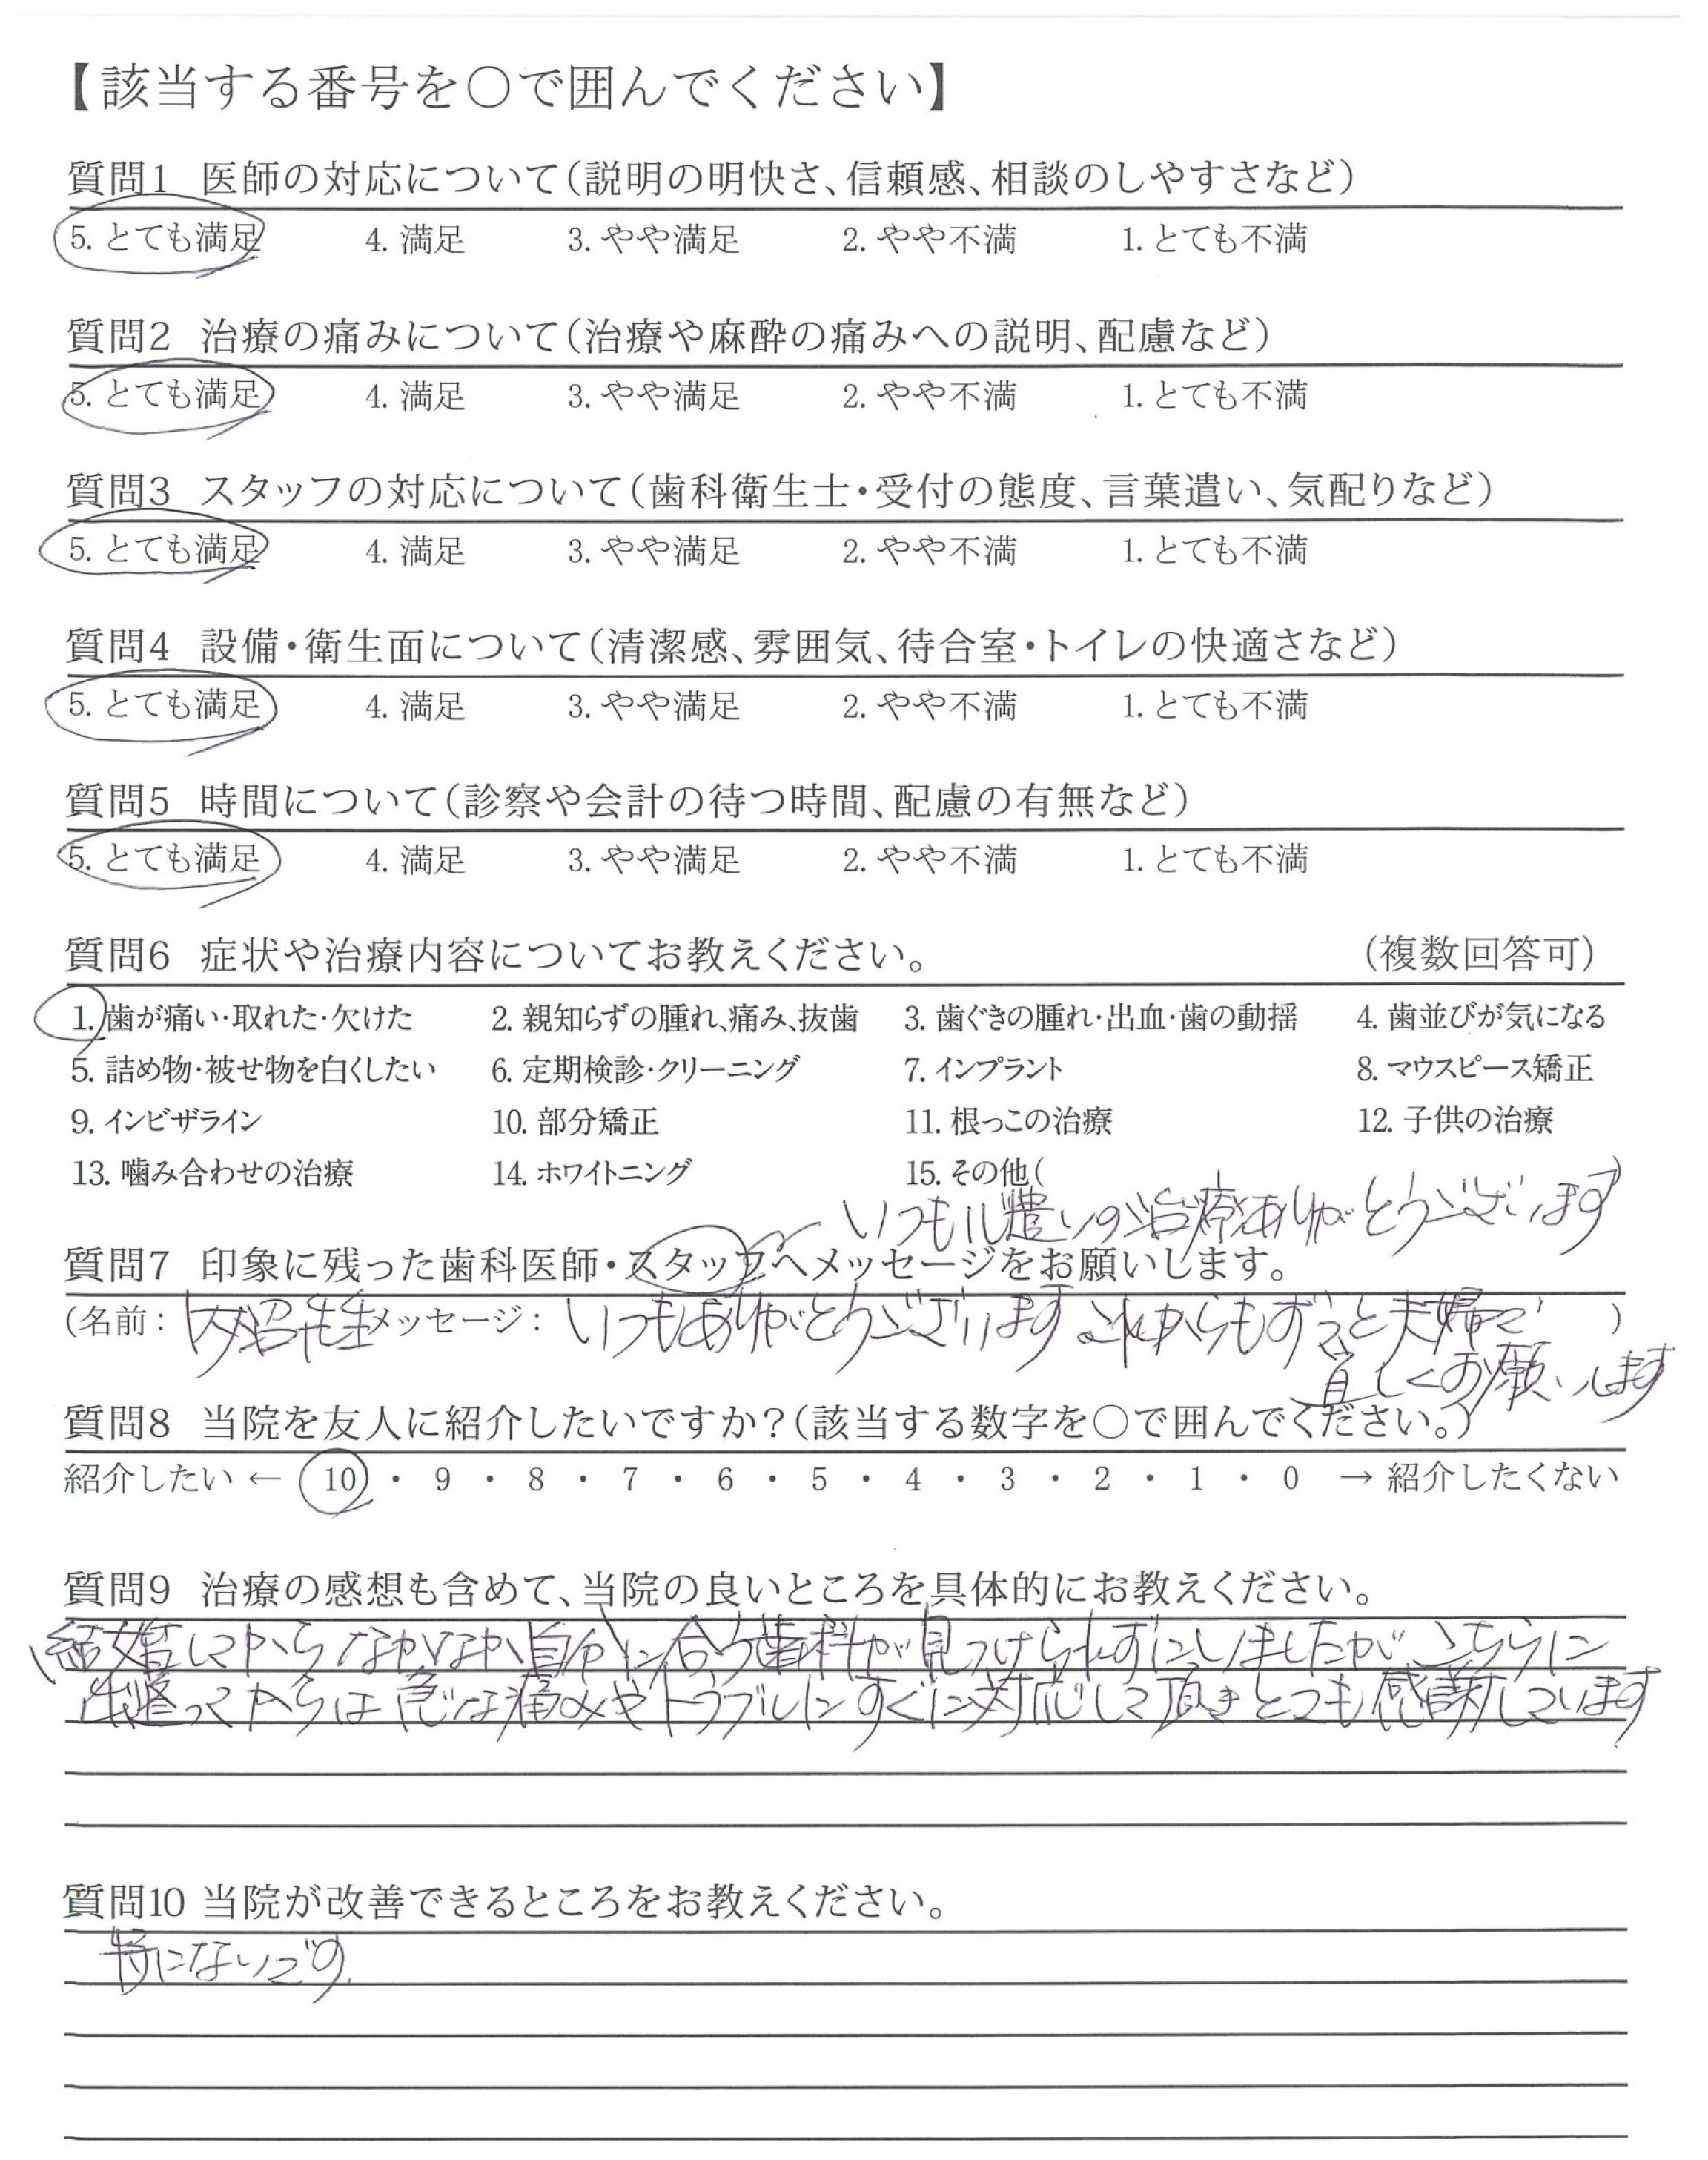 【該当する番号を○で囲んでください】
質問1 医師の対応について(説明の明快さ、信頼感、相談のしやすさなど)
5. とても満足 4. 満足 3. やや満足 2. やや不満 1. とても不満
質問2 治療の痛みについて(治療や麻酔の痛みへの説明、配慮など)
5. とても満足 4. 満足 3. やや満足 2. やや不満 1. とても不満
質問3 スタッフの対応について(歯科衛生士・受付の態度、言葉遣い、気配りなど)
5. とても満足 4. 満足 3. やや満足 2. やや不満 1. とても不満
質問4 設備・衛生面について(清潔感、雰囲気、待合室・トイレの快適さなど)
5. とても満足 4. 満足 3. やや満足 2. やや不満 1. とても不満
質問5 時間について(診察や会計の待つ時間、配慮の有無など)
5. とても満足 4. 満足 3. やや満足 2. やや不満 1. とても不満
質問6 症状や治療内容についてお教えください。 (複数回答可)
1. 歯が痛い・取れた・欠けた 2. 親知らずの腫れ、痛み、抜歯 3. 歯ぐきの腫れ・出血・歯の動揺 4. 歯並びが気になる
5. 詰め物・被せ物を白くしたい 6. 定期検診・クリーニング 7. インプラント 8. マウスピース矯正
9. インビザライン 10. 部分矯正 11. 根っこの治療 12. 子供の治療
13. 噛み合わせの治療 14. ホワイトニング 15. その他( )
いつも心遣いの治療ありがとうございます
質問7 印象に残った歯科医師・スタッフへメッセージをお願いします。
(名前: 内沼先生 メッセージ: いつもありがとうございます これからもずっと夫婦で )
宜しくお願いします
質問8 当院を友人に紹介したいですか?(該当する数字を○で囲んでください。)
紹介したい ← 10 ・ 9 ・ 8 ・ 7 ・ 6 ・ 5 ・ 4 ・ 3 ・ 2 ・ 1 ・ 0 → 紹介したくない
質問9 治療の感想も含めて、当院の良いところを具体的にお教えください。
結婚してからなかなか自分に合う歯科が見つけられずにいましたが こちらに
出逢ってからは 急な痛みやトラブルにすぐに対応して頂きとても感謝しています
質問10 当院が改善できるところをお教えください。
特にないです.